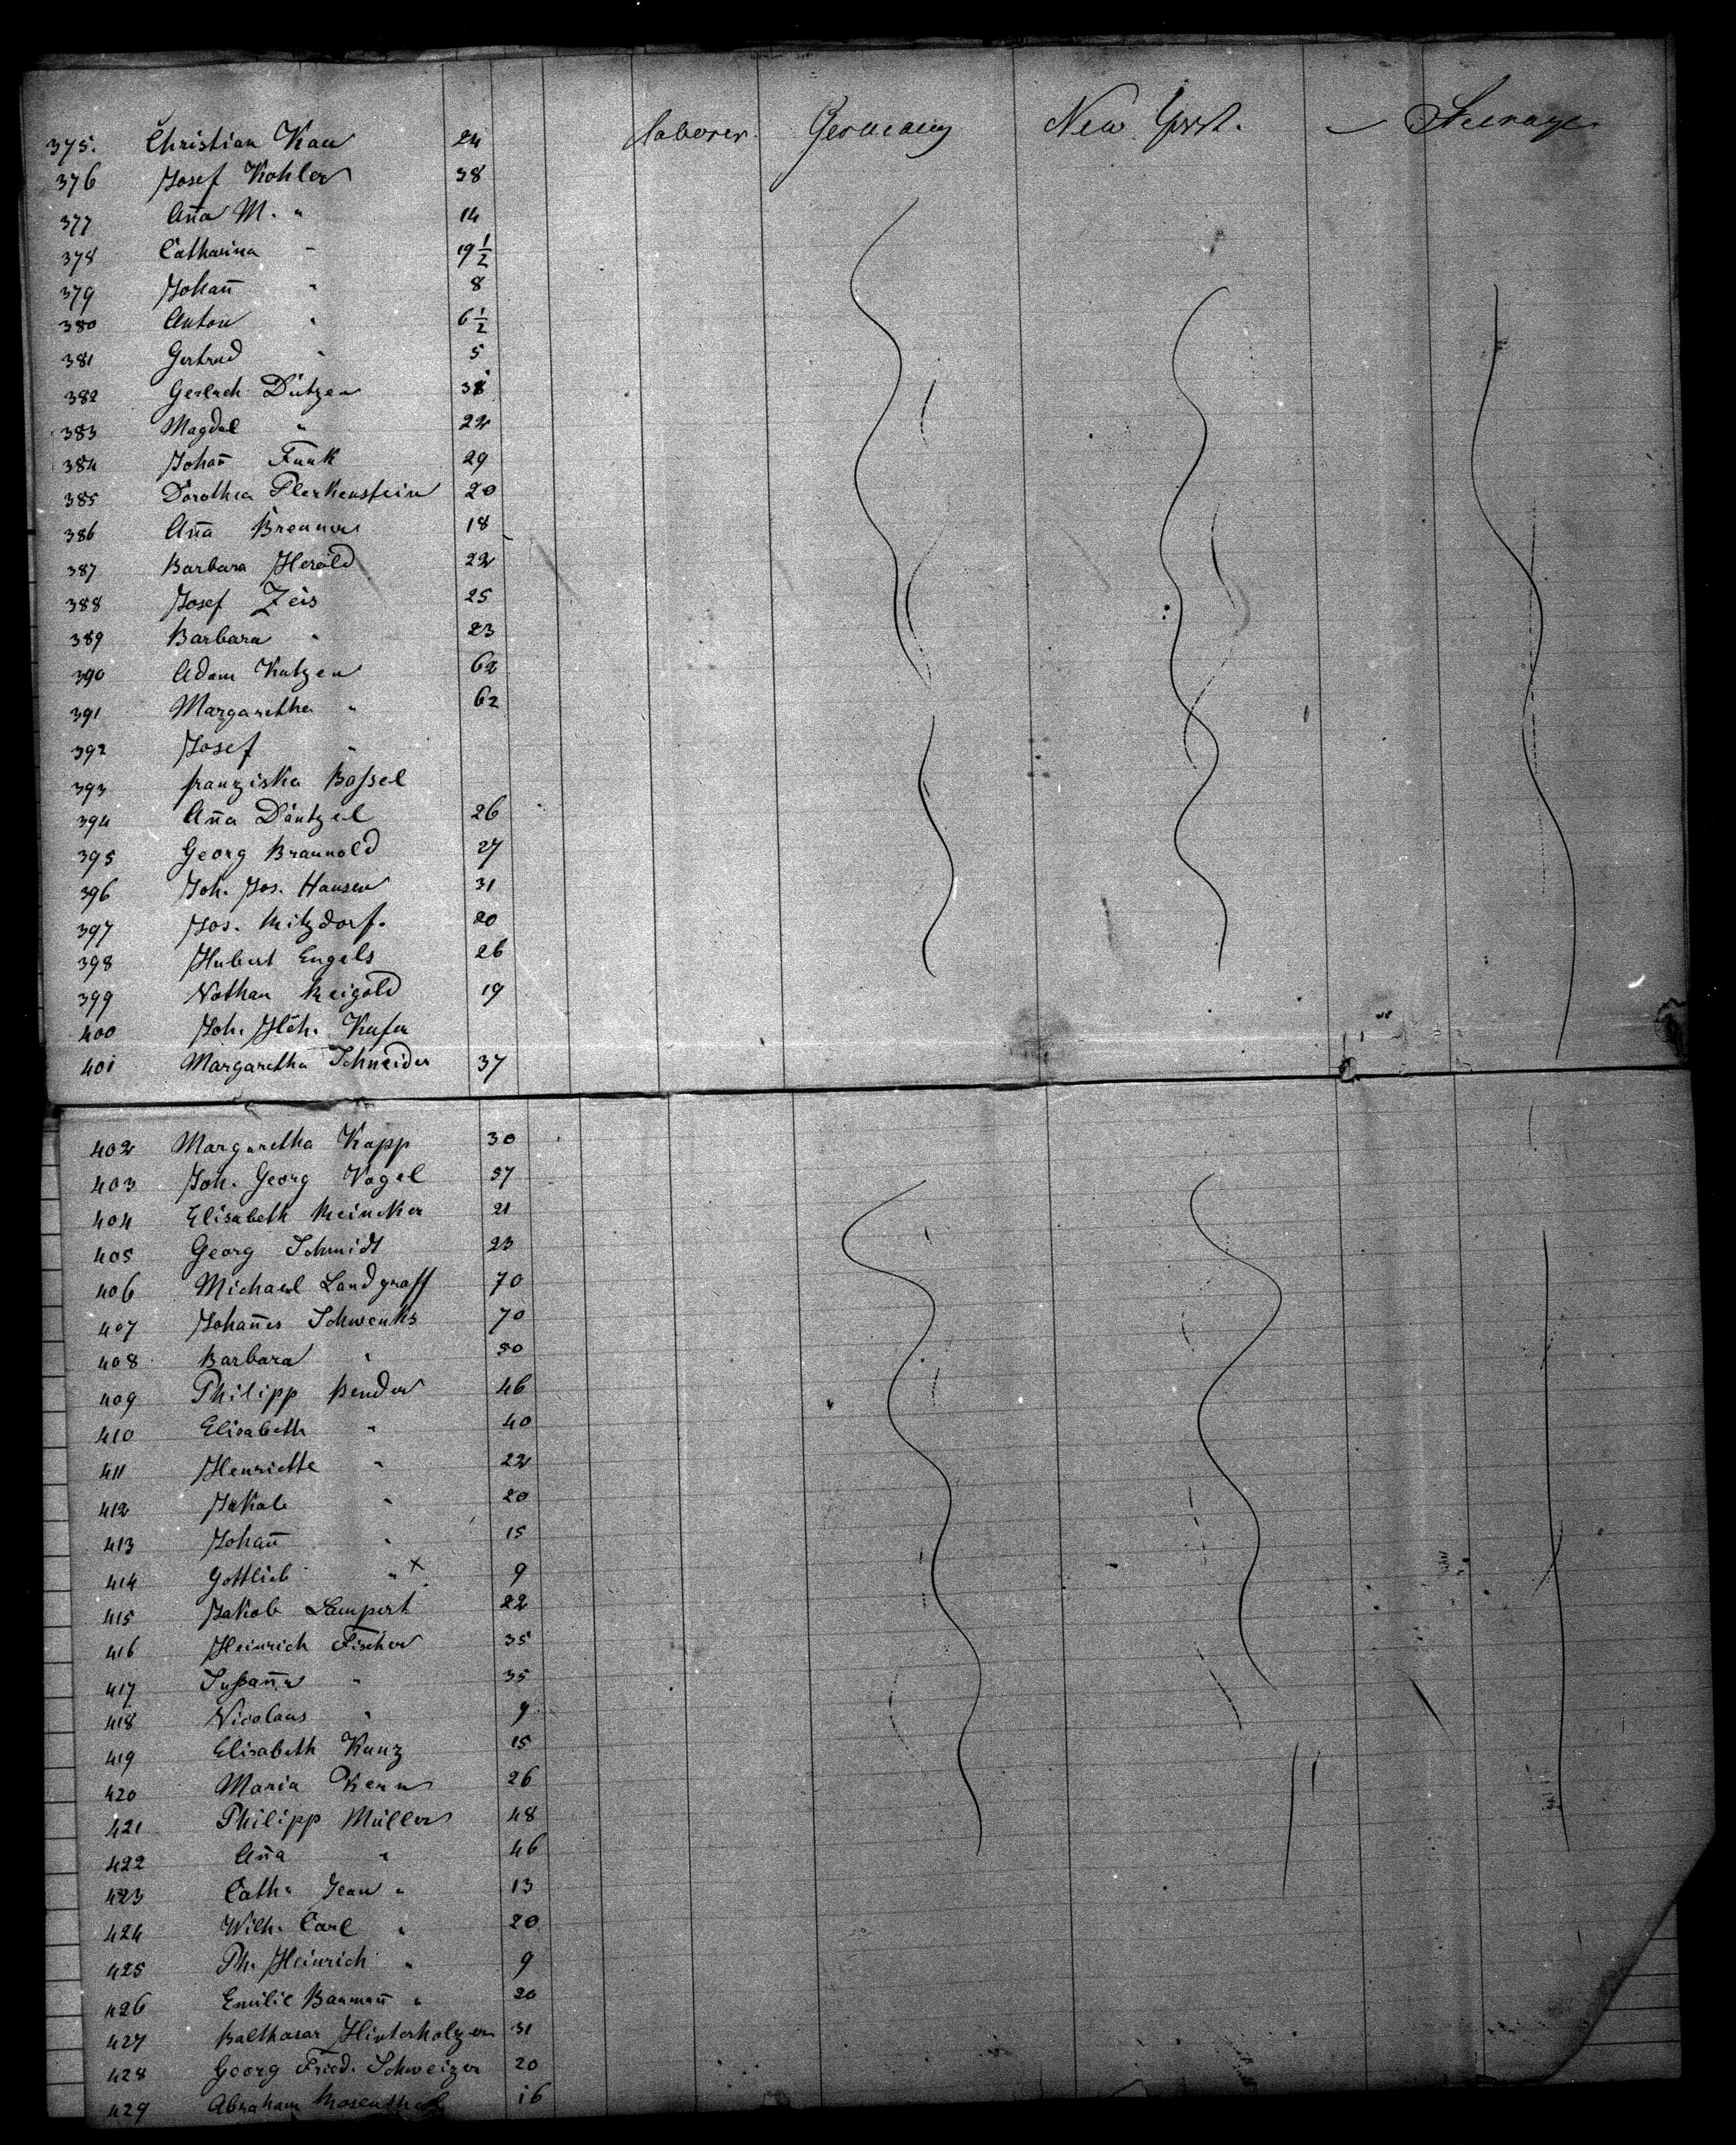 375. Christian Kau 24 laborer. Germany New York. — Steerage
376 Josef Kohler 38
377 Ana M. " 14
378 Catharina " 19 1/2
379 Johan̄ " 8
380 Anton " 6 1/2
381 Gertrud " 5
382 Gerlach Dützen 38
383 Magdal " 22
384 Johan̄ Funk 29
385 Dorothea Plerkenstein 20
386 An̄a Brenner 18
387 Barbara Herold 22
388 Josef Zeis 25
389 Barbara " 23
390 Adam Kutzen 62
391 Margaretha " 62
392 Josef "
393 franziska Boßel
394 An̄a Däntzel 26
395 Georg Braunold 27
396 Joh. Jos. Hansen 31
397 Jos. Mitzdorf. 20
398 Hubert Engels 26
399 Nathan Reigold 19
400 Joh. Hch. Kufer
401 Margaretha Schneider 37
402 Margaretha Kapp 30
403 Joh. Georg Vogel 57
404 Elisabeth Meincker 21
405 Georg Schmidt 23
406 Michael Landgraff 70
407 Johan̄es Schwenks 70
408 Barbara " 50
409 Philipp Bender 46
410 Elisabeth " 40
411 Henriette " 22
412 Jakob " 20
413 Johan̄ " 15
414 Gottlieb " x 9
415 Jakob Lampert 22
416 Heinrich Fischer 35
417 Sußan̄a " 35
418 Nicolaus " 9
419 Elisabeth Kunz 15
420 Maria Kern 26
421 Philipp Müller 48
422 An̄a " 46
423 Cath. Jean " 13
424 Wilh. Carl " 20
425 Ph. Heinrich " 9
426 Emilie Bauman̄ " 20
427 Balthasar Hinterholzer 31
428 Georg Fried. Schweizer 20
429 Abraham Rosenthal 16